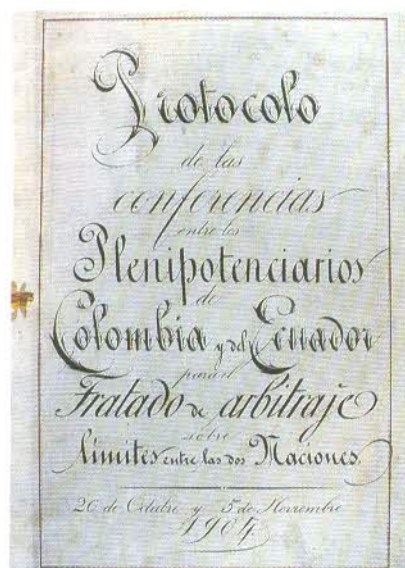 Protocolo
de las
conferencias
entre los
Plenipotenciarios
de
Colombia y del Ecuador
para el
Tratado de arbitraje
sobre
límites entre las dos Naciones.
26 de Octubre y 5 de Noviembre
1904.